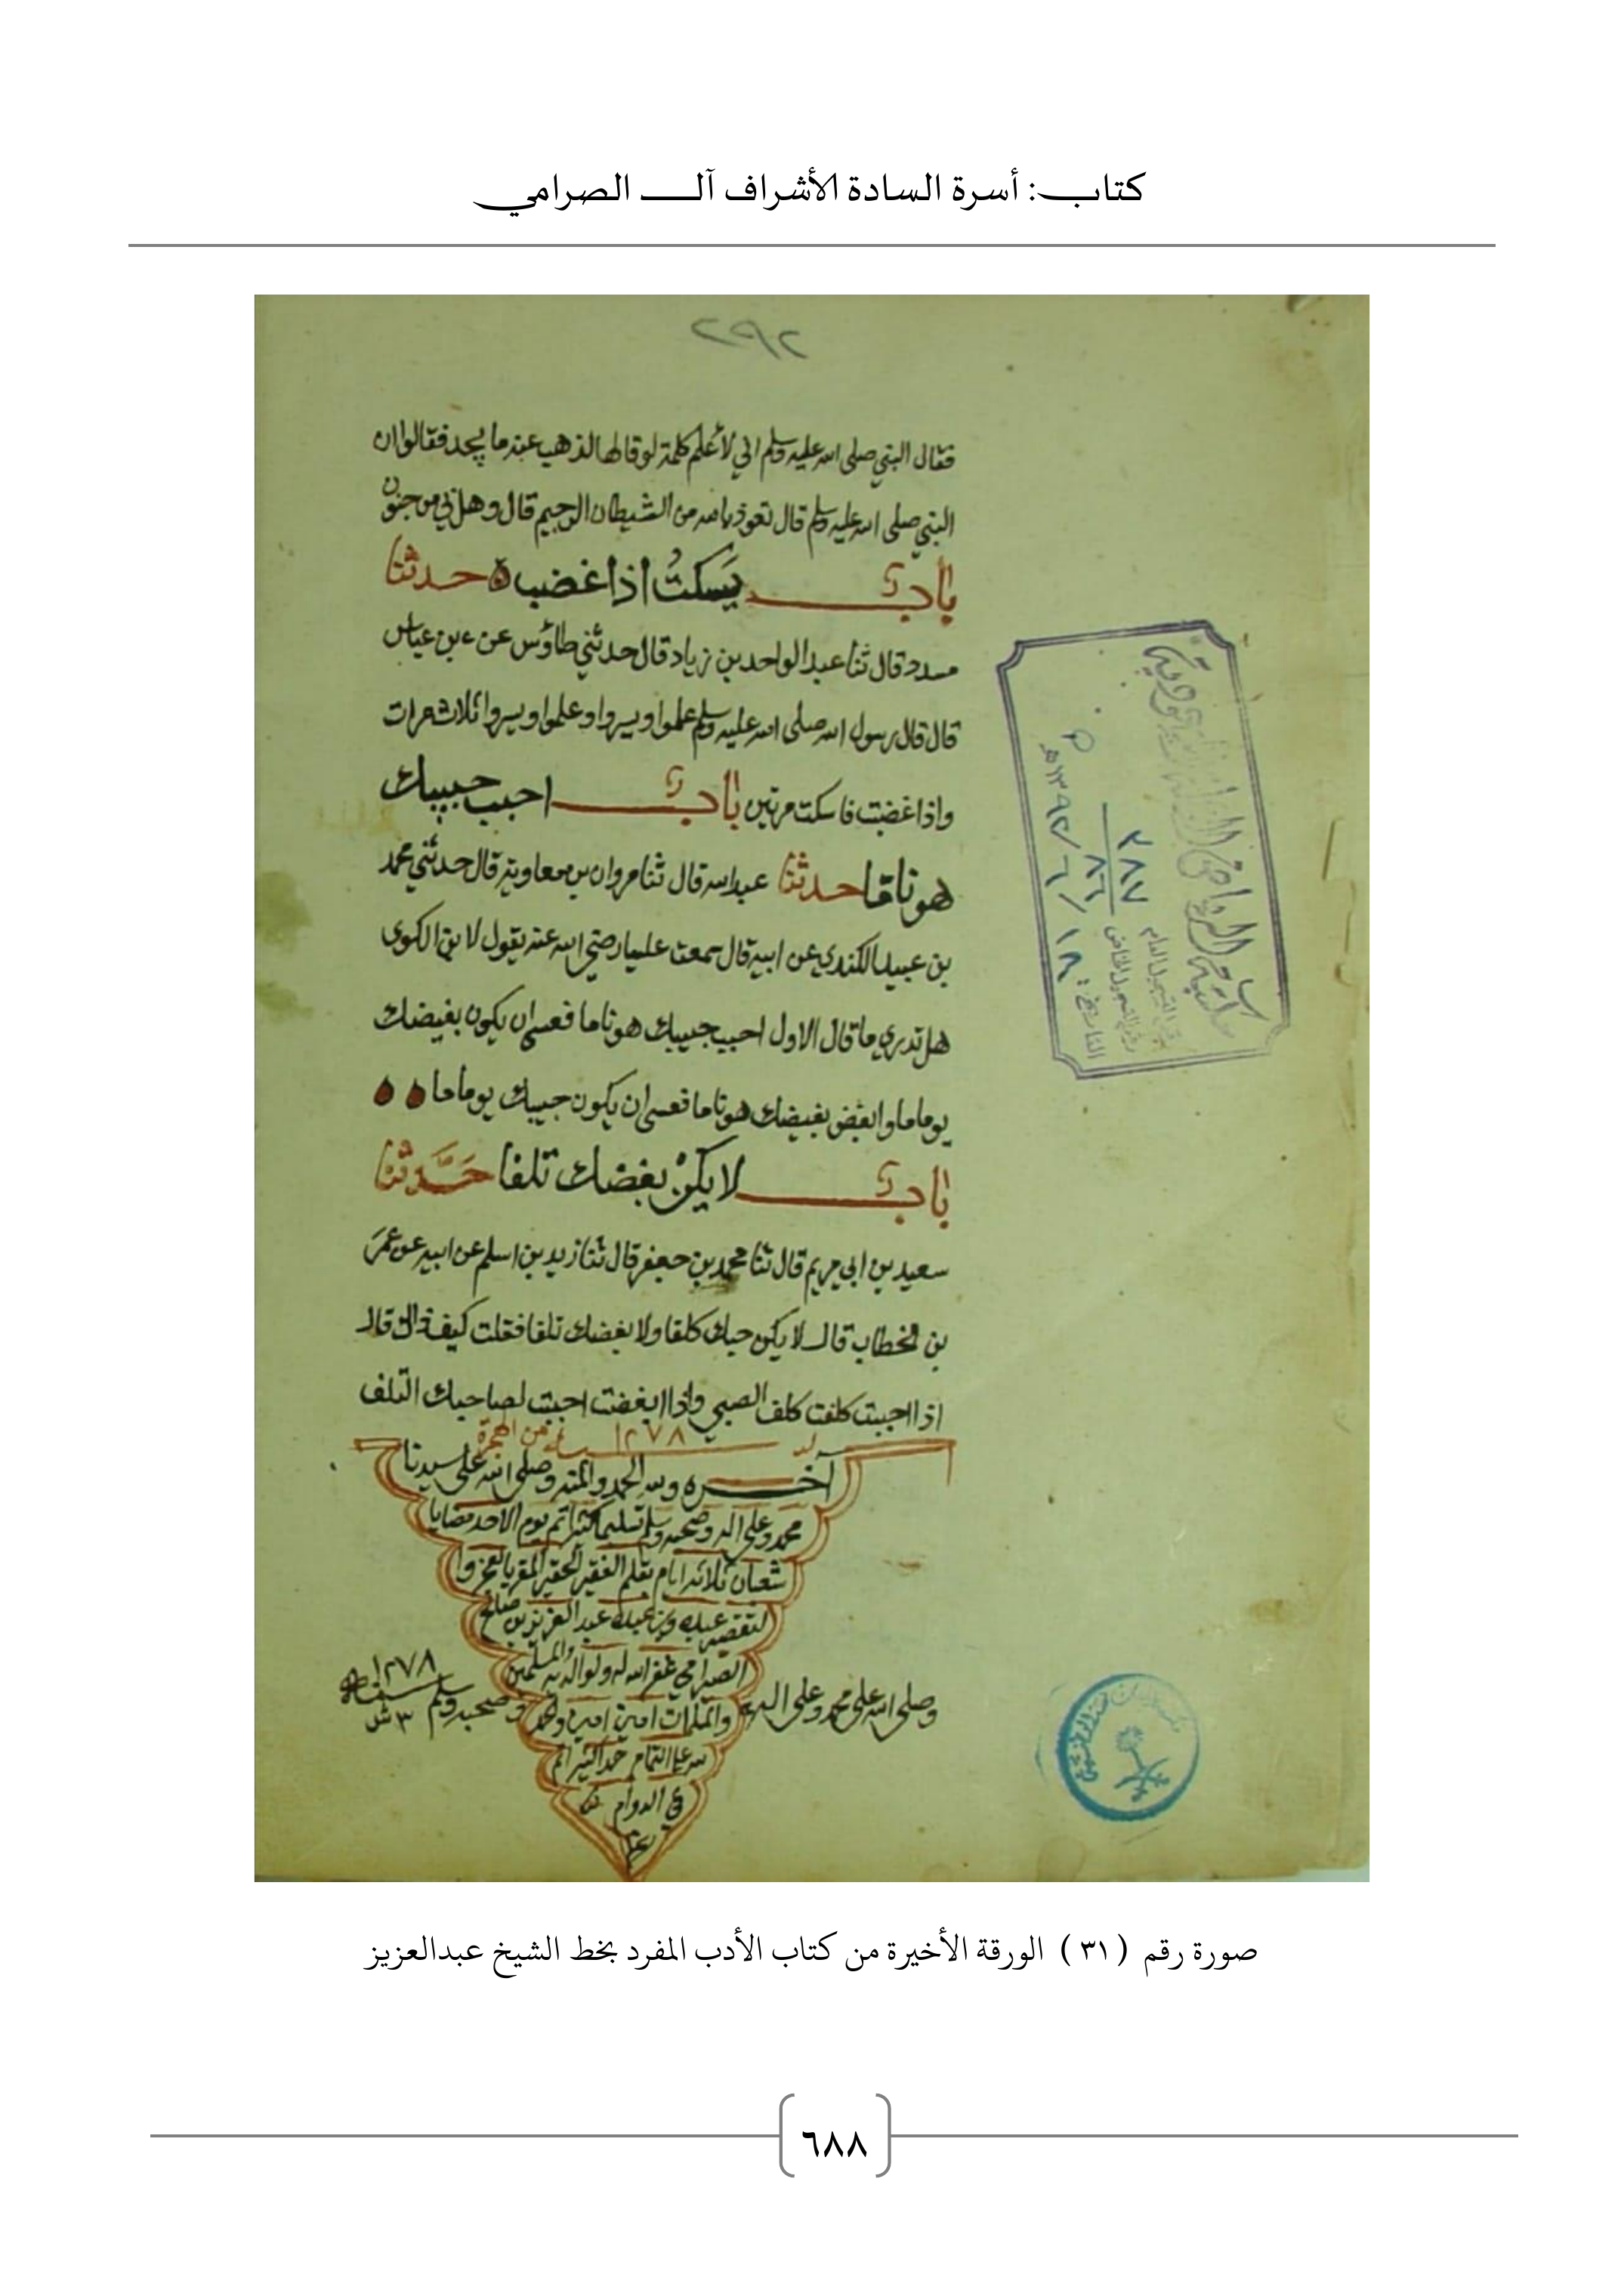 كتاب: أسرة السادة الأشراف آل الصرامي
٢٩٢
فقال النبي صلى الله عليه وسلم اني لأعلم كلمة لو قالها لذهب عنه ما يجد فقالوا ان
النبي صلى الله عليه وسلم قال تعوذ بالله من الشيطان الرجيم قال وهل بي من جنون
باب يسكت اذا غضب حدثنا
مسدد قال ثنا عبد الواحد بن زياد قال حدثني طاؤس عن بن عباس
قال قال رسول الله صلى الله عليه وسلم علموا ويسروا وعلموا ويسروا ثلاث مرات
واذا غضبت فاسكت مرتين باب احبب حبيبك
هونا ما حدثنا عبد الله قال ثنا مروان بن معاوية قال حدثني محمد
بن عبيد الكندي عن ابيه قال سمعت عليا رضي الله عنه يقول لابن الكوى
هل تدري ما قال الاول احبب حبيبك هونا ما فعسى ان يكون بغيضك
يوما ما وابغض بغيضك هونا ما فعسى ان يكون حبيبك يوما ما
باب لا يكن بغضك تلفا حدثنا
سعيد بن ابي مريم قال ثنا محمد بن جعفر قال ثنا زيد بن اسلم عن ابيه عن عمر
بن الخطاب قال لا يكن حبك كلفا ولا بغضك تلفا فقلت كيف ذاك قال
اذا احببت كلفت كلف الصبي واذا ابغضت احببت لصاحبك التلف
١٢٧٨ من الهجرة
آخره ولله الحمد والمنه وصلى الله على سيدنا
محمد وعلى اله وصحبه وسلم تسليما كثيرا تم يوم الاحد
شعبان ثلاثة ايام بقلم الفقير الحقير المقر بالعجز وا
لتقصير عبده وبن عبده عبد العزيز بن صالح
الصرامي غفر الله له ولوالديه والمسلمين
والمسلمات امين امين
على التمام
الدوام
وصلى الله على محمد وعلى اله
وصحبه وسلم
١٢٧٨
سنة
٣ ش
٢٨٧
٨٦
١٨/٦/١٣٩٢هـ
صورة رقم (٣١) الورقة الأخيرة من كتاب الأدب المفرد بخط الشيخ عبدالعزيز
٦٨٨